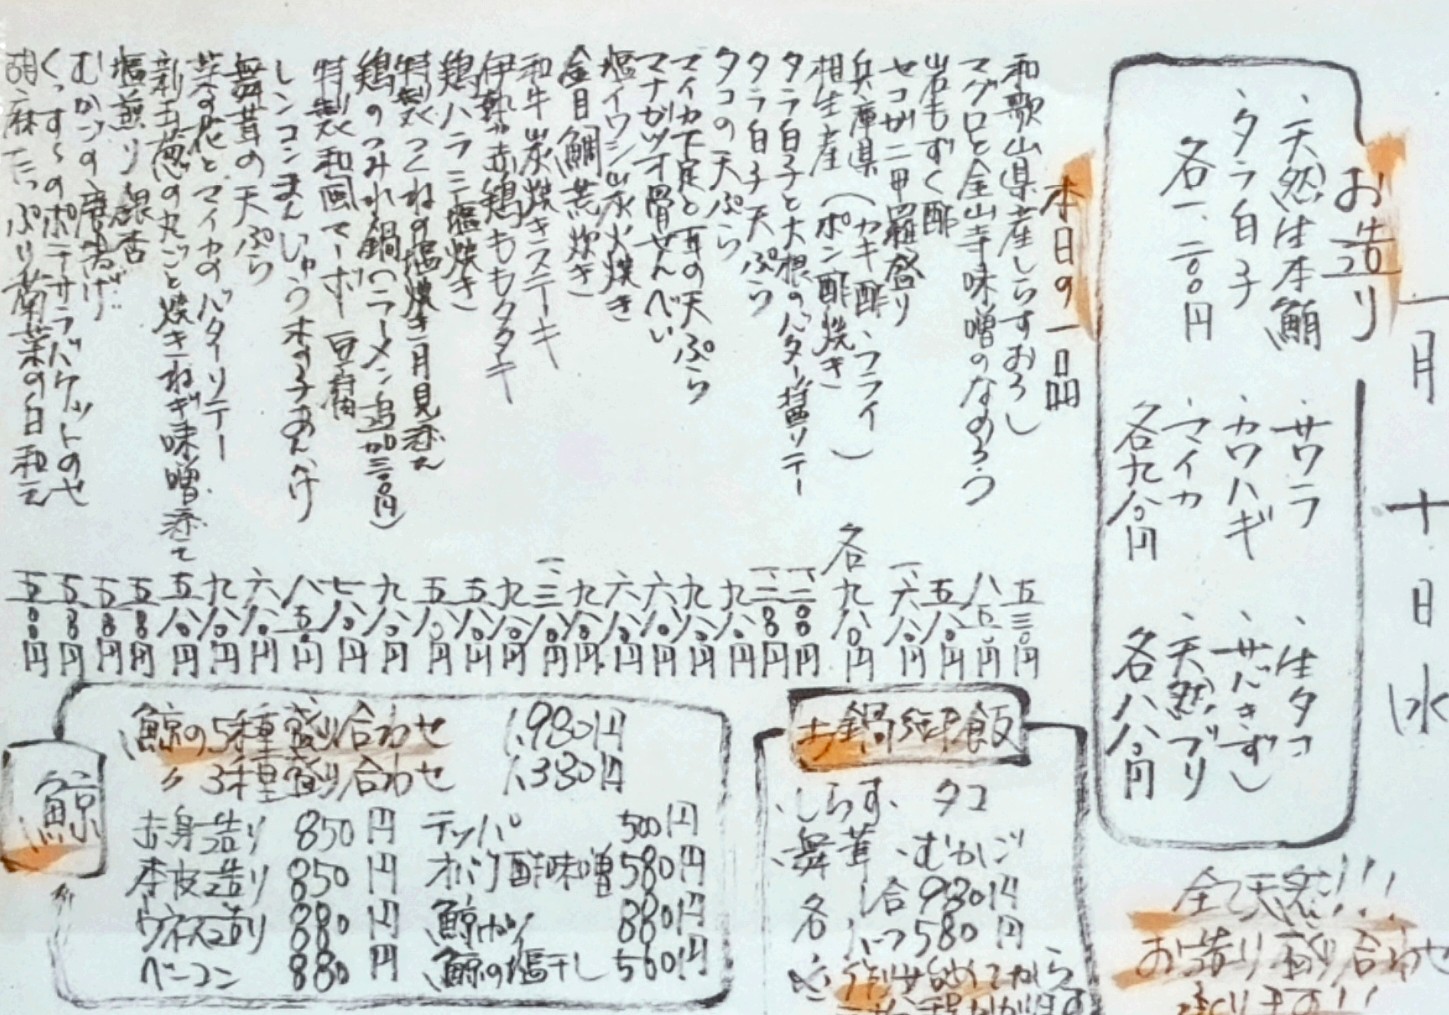 一月十日水
お造り
・天然生本鮪
・タラ白子
各一、二〇〇円
・サワラ
・カワハギ
・マイカ
各九八〇円
・生タコ
・サヨリきずし
・天然ブリ
各八八〇円
全て天然!!!
お造り盛り合わせ
本日の一品
和歌山県産しらすおろし 五三〇円
マグロと金山寺味噌のなめろう 八五〇円
岩もずく酢 五八〇円
セコガニ甲羅盛り 一、六八〇円
兵庫県(カキ酢・フライ
相生産(ポン酢焼き) 各九八〇円
タラ白子と大根のバター醤ソテー 一、二〇〇円
タラ白子天ぷら 一、二〇〇円
タコの天ぷら 九八〇円
マイカ下足と耳の天ぷら 九八〇円
マナガツオ骨せんべい 六八〇円
塩イワシ炭火焼き 六八〇円
金目鯛荒炊き 九八〇円
和牛炭焼きステーキ 一、三八〇円
伊勢赤鶏ももタタキ 九八〇円
鶏ハラミ塩焼き 五八〇円
特製つくねの塩焼き 月見添え 五八〇円
鶏のつみれ鍋(ラーメン追加三〇〇円) 九八〇円
特製和風マーボー豆腐 七八〇円
レンコンまんじゅう木の子あんかけ 八五〇円
舞茸の天ぷら 六八〇円
菜の花とマイカのバターソテー 九八〇円
新玉葱の丸ごと焼き ねぎ味噌添えて 五八〇円
塩煎り銀杏 五〇〇円
むかごの唐揚げ 五〇〇円
くっすんのポテサラバケットのせ 五八〇円
胡麻たっぷり菊菜の白和え 五〇〇円
土鍋御飯
・しらす・タコ
・舞茸・むかご
各 一合 980円
ハーフ 580円
鯨
鯨の5種盛り合わせ 1,980円
〃 3種盛り合わせ 1,380円
赤身造り 850円
本皮造り 850円
ウネス造り 880円
ベーコン 880円
テッパ 500円
オバケ酢味噌 580円
鯨カツ 880円
鯨の塩干し 560円